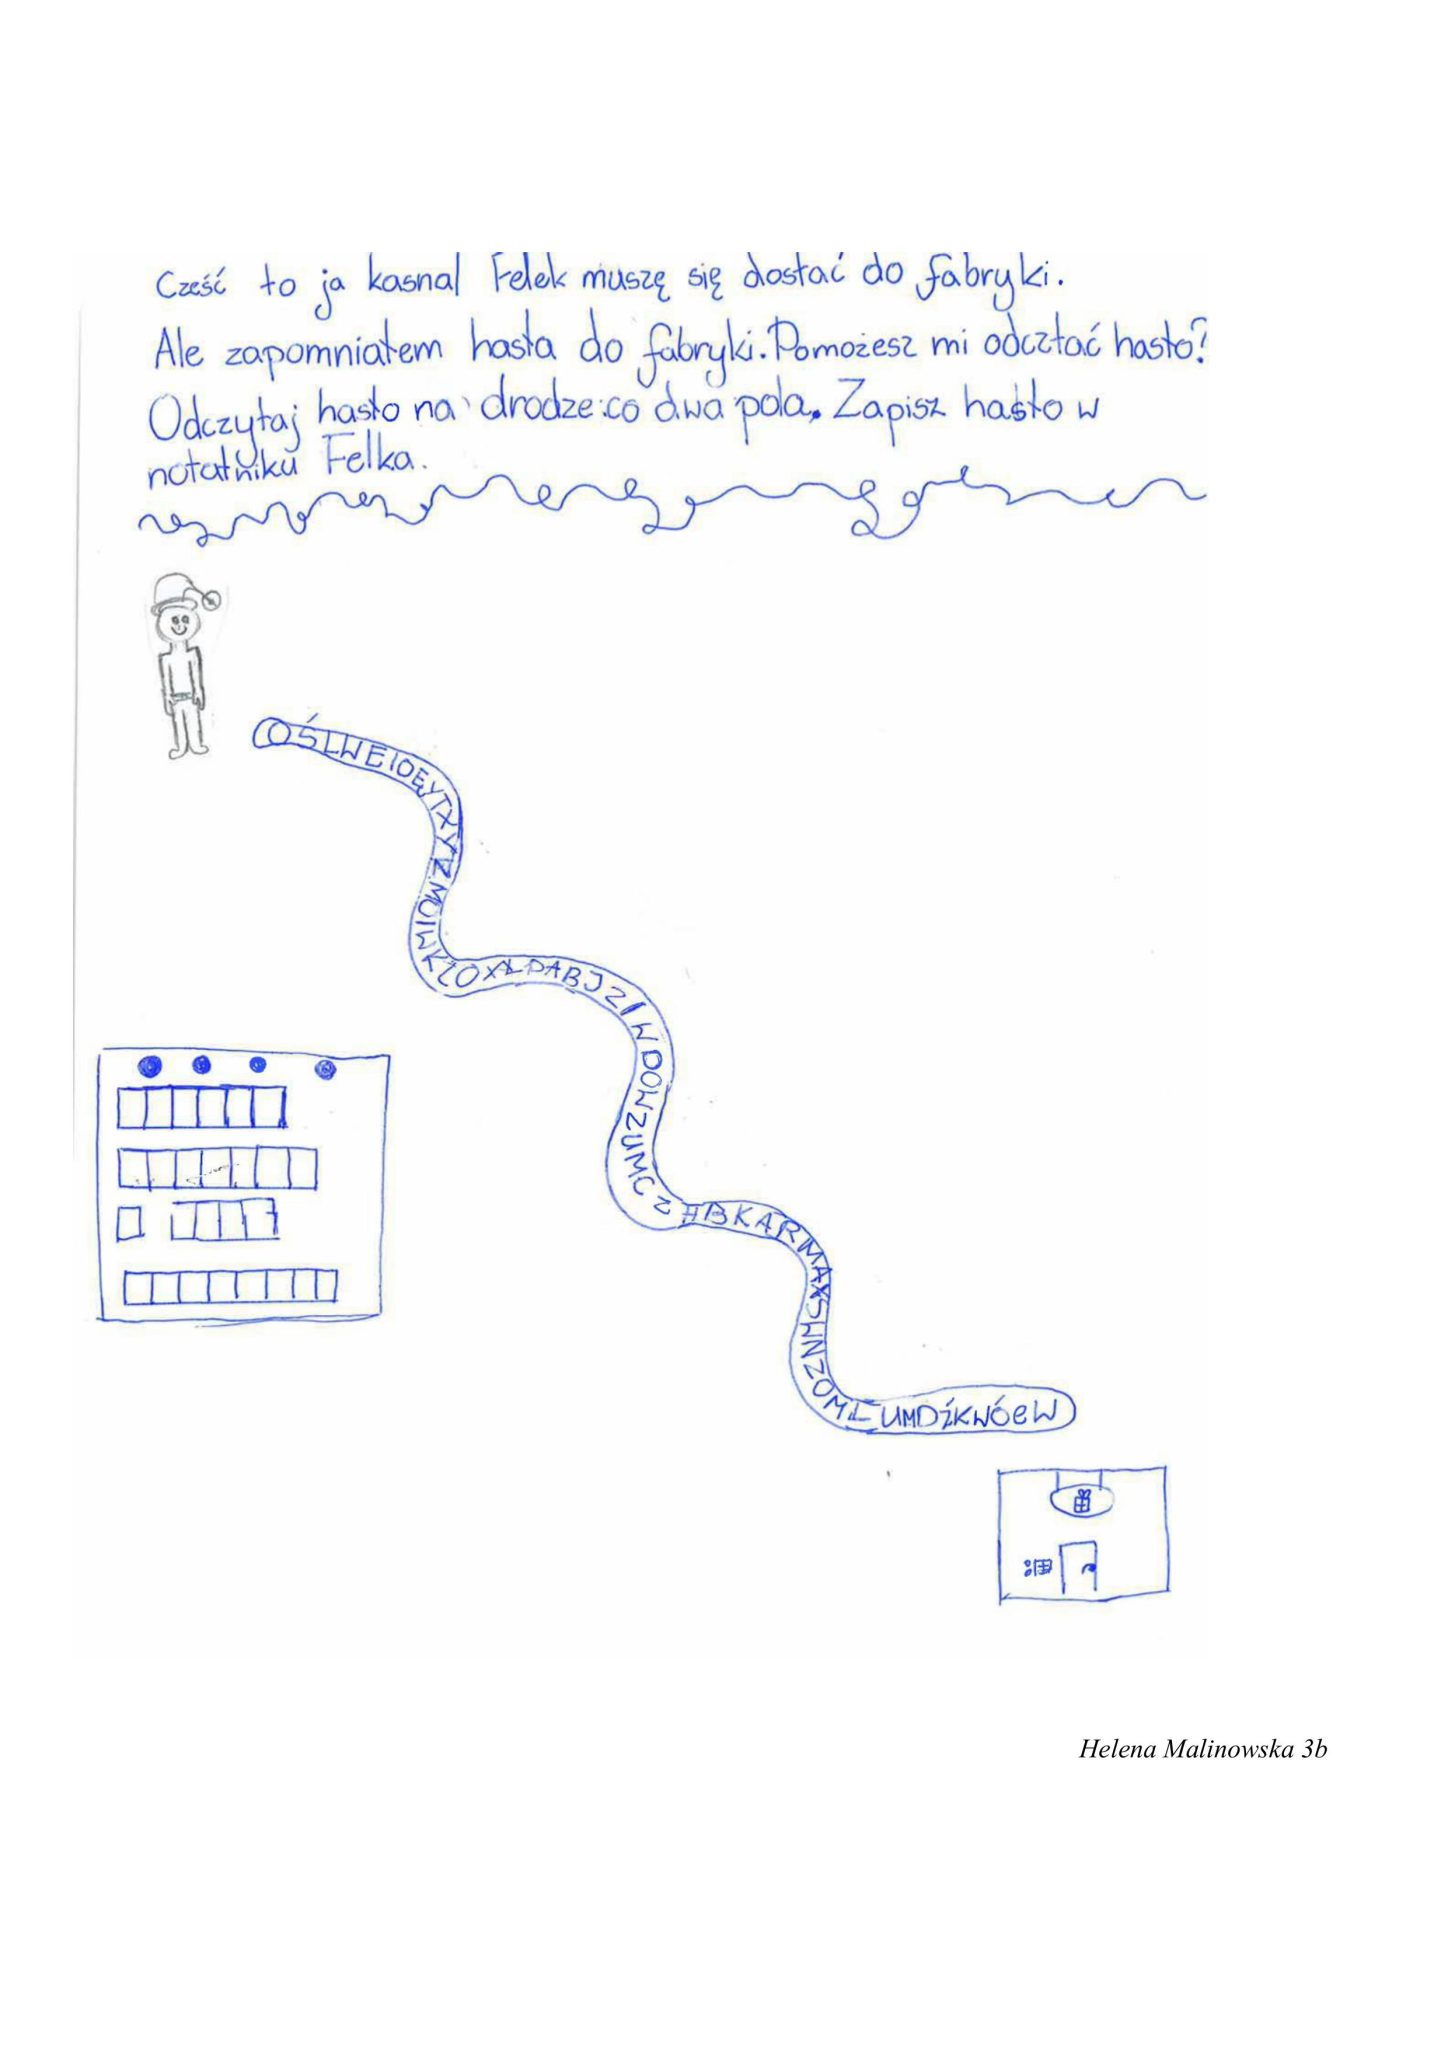 Cześć to ja kasnal Felek muszę się dostać do fabryki.
Ale zapomniałem hasła do fabryki. Pomożesz mi odcztać hasło?
Odczytaj hasło na drodze co dwa pola. Zapisz hasło w
notatniku Felka.
Helena Malinowska 3b